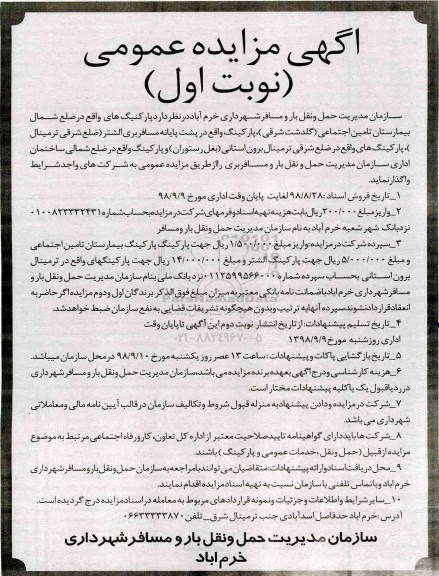 آگهی مزایده عمومی
(نوبت اول)
سازمان مدیریت حمل ونقل بار و مسافر شهرداری خرم آباد در نظر دارد پارکینگ های واقع در ضلع شمال
بیمارستان تامین اجتماعی (گلدشت شرقی)، پارکینگ واقع در پشت پایانه مسافربری الشتر (ضلع شرقی ترمینال
)، پارکینگ های واقع در ضلع شرقی ترمینال برون استانی (بغل رستوران) و پارکینگ واقع در ضلع شمالی ساختمان
اداری سازمان مدیریت حمل و نقل بار و مسافربری را از طریق مزایده عمومی به شرکت های واجد شرایط
واگذار نماید.
۱_ تاریخ فروش اسناد: ۹۸/۸/۲۸ لغایت پایان وقت اداری مورخ ۹۸/۹/۹
۲_ واریز مبلغ ۲۰۰/۰۰۰ ریال بابت هزینه تهیه اسناد و فرمهای شرکت در مزایده بحساب شماره ۰۱۰۰۸۲۳۳۳۲۴۳۱
نزد بانک شهر شعبه خرم آباد به نام سازمان مدیریت حمل ونقل بار و مسافر
۳_ سپرده شرکت در مزایده: واریز مبلغ ۱/۵۰۰/۰۰۰ ریال جهت پارکینگ پارکینگ بیمارستان تامین اجتماعی
و مبلغ ۵/۰۰۰/۰۰۰ ریال جهت پارکینگ الشتر و مبلغ ۱۴/۰۰۰/۰۰۰ ریال جهت پارکینگهای واقع در ترمینال
برون استانی بحساب سپرده شماره ۰۱۱۲۵۹۹۵۶۶۰۰۰ نزد بانک ملی بنام سازمان مدیریت حمل ونقل بار و
مسافر شهرداری خرم اباد یا ضمانت نامه بانکی معتبر به میزان مبلغ فوق الذکر برندگان اول و دوم مزایده اگر حاضر به
انعقاد قرارداد نشوند سپرده آنها به ترتیب و بدون هیچگونه تشریفات قضایی به نفع سازمان ضبط خواهد شد.
۴_ تاریخ تسلیم پیشنهادات: از تاریخ انتشار نوبت دوم این آگهی تا پایان وقت
اداری روز شنبه مورخ ۱۳۹۸/۹/۹
ParsNamadData
۰۲۱-۸۸۳۴۹۶۷۰-۵
۵_ تاریخ بازگشایی پاکات و پیشنهادات: ساعت ۱۳ عصر روز یکشنبه مورخ ۹۸/۹/۱۰ در محل سازمان میباشد.
۶_ هزینه کارشناسی و درج آگهی بعهده برنده مزایده می باشد، سازمان مدیریت حمل ونقل بار و مسافر شهرداری
در رد یا قبول یک یا کلیه پیشنهادات مختار است.
۷_ شرکت در مزایده و دادن پیشنهاد به منزله قبول شروط و تکالیف سازمان در قالب آیین نامه مالی و معاملاتی
شهرداری می باشد.
۸_ شرکت ها باید دارای گواهینامه تایید صلاحیت معتبر از اداره کل تعاون، کار و رفاه اجتماعی مرتبط به موضوع
مزایده از قبیل (حمل ونقل ،خدمات عمومی و پارکینگ) باشند.
۹_ محل دریافت اسناد و ارائه پیشنهادات: متقاضیان می توانند با مراجعه به سازمان حمل ونقل بار و مسافر شهرداری
خرم آباد و یا تماس تلفنی با سازمان نسبت به تهیه اسناد مزایده اقدام نمایند.
۱۰_ سایر شرایط و اطلاعات و جزئیات و نمونه قراردادهای مربوط به معامله در اسناد مزایده درج گردیده است.
آدرس: خرم آباد حدفاصل اسدآبادی جنب ترمینال شرق_ تلفن ۰۶۶۳۳۳۳۳۸۷۰
سازمان مدیریت حمل ونقل بار و مسافر شهرداری
خرم اباد